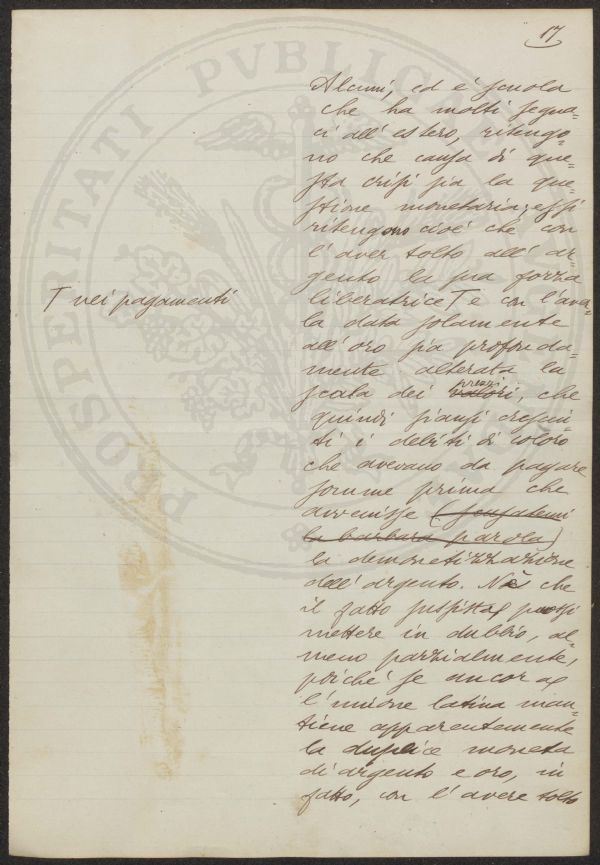 17
Alcuni, ed è scuola
che ha molti segua=
ci all' estero, ritengo=
no che causa di que=
sta crisi sia la que=
stione monetaria; essi
ritengono cioè che con
l' aver tolto all' ar=
gento la sua forza
liberatrice T e con l' aver=
la data solamente
all' oro sia profonda=
mente alterata la
scala dei valori prezzi, che
quindi siansi cresciu=
ti i debiti di coloro
che avevano da pagare
somme prima che
avvenisse (scusatemi
la barbara parola)
la demonetizzazione
dell' argento. Nè che
il fatto sussista puossi
mettere in dubbio, al=
meno parzialmente,
poichè se ancora
l' unione latina man=
tiene apparentemente
la duplice moneta
di argento e oro, in
fatto, con l' avere tolto
T nei pagamenti
PROSPERITATI PVBLICAE